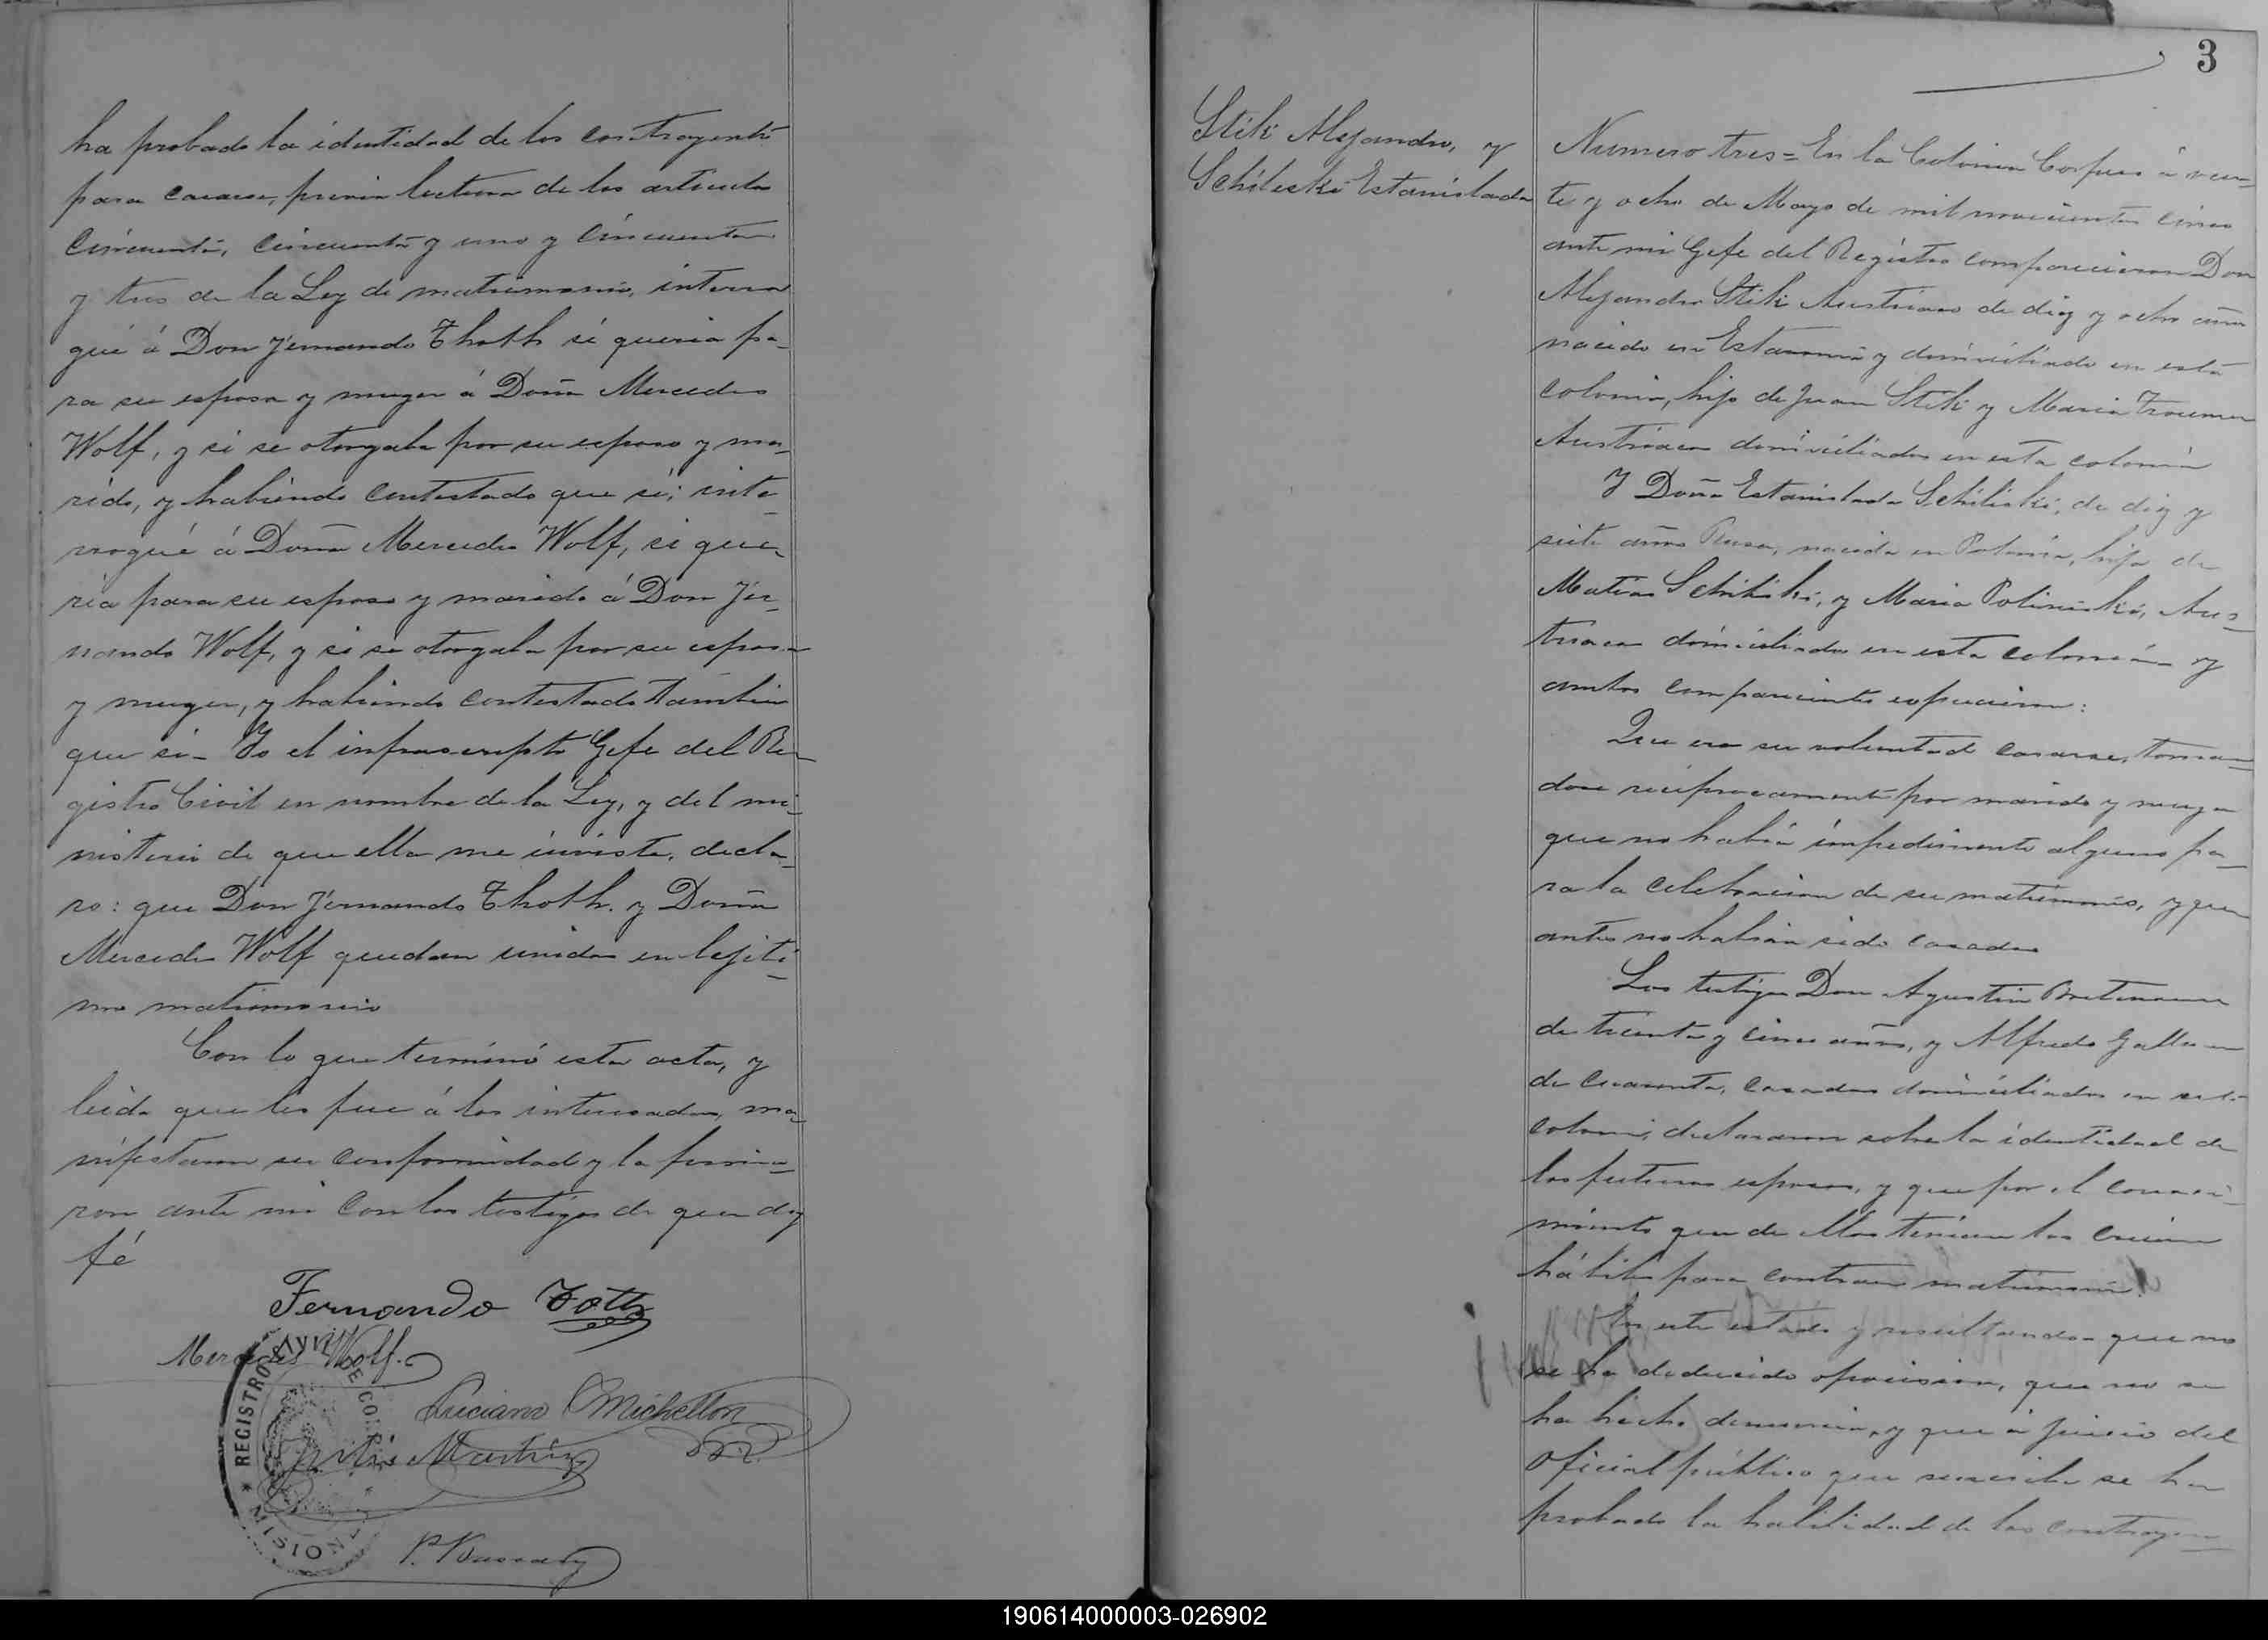 ha probado la identidad de los contrayentes
para casarse, previa lectura de los articulos
cincuenta, cincuenta y uno y cincuenta
y tres de la Ley de matrimonio, interro
gué á Don Fernando Thoth si queria pa-
ra su esposa y muger á Doña Mercedes
Wolf, y si se otorgaba por su esposo y ma-
rido, y habiendo contestado que si; inte-
rrogué á Doña Mercedes Wolf, si que-
ria para su esposo y marido á Don Fer-
nando Wolf, y si se otorgaba por su esposa
y muger, y habiendo contestado tambien
que si - Yo el infrascripto Gefe del Re-
gistro Civil en nombre de la Ley, y del mi-
nisterio de que ella me inviste, decla-
ro: que Don Fernando Thoth. y Doña
Mercedes Wolf quedan unidos en lejiti-
mo matrimonio
Con lo que terminó esta acta, y
leida que les fue á los interesados, ma-
nifestaron su conformidad y la firma-
ron ante mi con los testigos de que doy
fé
Fernando Toth
Mercedes Wolf.
Luciano Michellon
Martinez
REGISTRO CIVIL DE CORPUS
* MISIONES *
3
Stiki Alejandro, y
Schileski Estanislada
Numero tres = En la Colonia Corpus á vein-
te y ocho de Mayo de mil novecientos cinco
ante mi Gefe del Registro comparecieron Don
Alejandro Stiki Austriaco de diez y ocho años
nacido en y domiciliado en esta
colonia, hijo de Juan Stiki y Maria
Austriacos domiciliados en esta colonia
Y Doña Estanislada Schiliski, de diez y
siete años Rusa, nacida en Polonia, hija de
Matias Schiliski, y Maria Poliniski, Aus-
triacos domiciliados en esta colonia y
ambos comparecientes expusieron:
Que era su voluntad casarse, toman-
dose reciprocamente por marido y muger
que no habia impedimento alguno pa-
ra la celebracion de su matrimonio, y que
antes no habian sido casados
Los testigos Don Agustin
de treinta y cinco años, y Alfredo
de cuarenta, casados domiciliados en esta
colonia, declararon sobre la identidad de
los futuros esposos, y que por el conoci-
miento que de ellos tenian los creian
hábiles para contraer matrimonio.
En este estado y resultando que no
se ha deducido oposicion, que no se
ha hecho denuncia, y que á juicio del
oficial público que suscribe se ha
probado la habilidad de los contrayen-
190614000003-026902